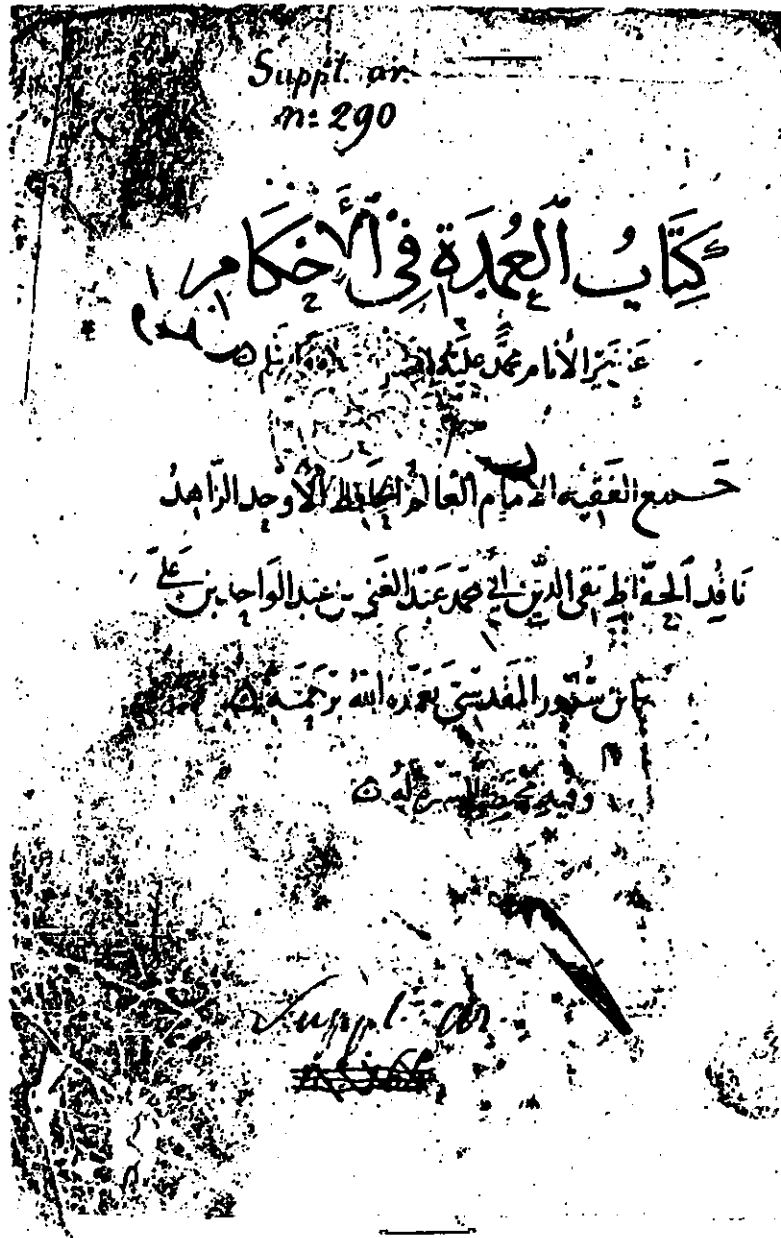 Suppl. ar.
n: 290
كِتَابُ العُمْدَةِ فِي الأَحْكَامِ
عَن خَيْرِ الأَنَام محمَّد عَلَيْه
جمع الفَقِيْه الامَام العَالم الحَافِظ الأَوحد الزَّاهدُ
نَاقِد الحفّاظ تقى الدين ابي محمد عَبْد الغَنى بن عبد الوَاحد بن عَلى
بن سُرُور المَقدسِيّ تغمّده اللهُ برحمته
وفيه مختصر السيرة له
Suppl. ar.